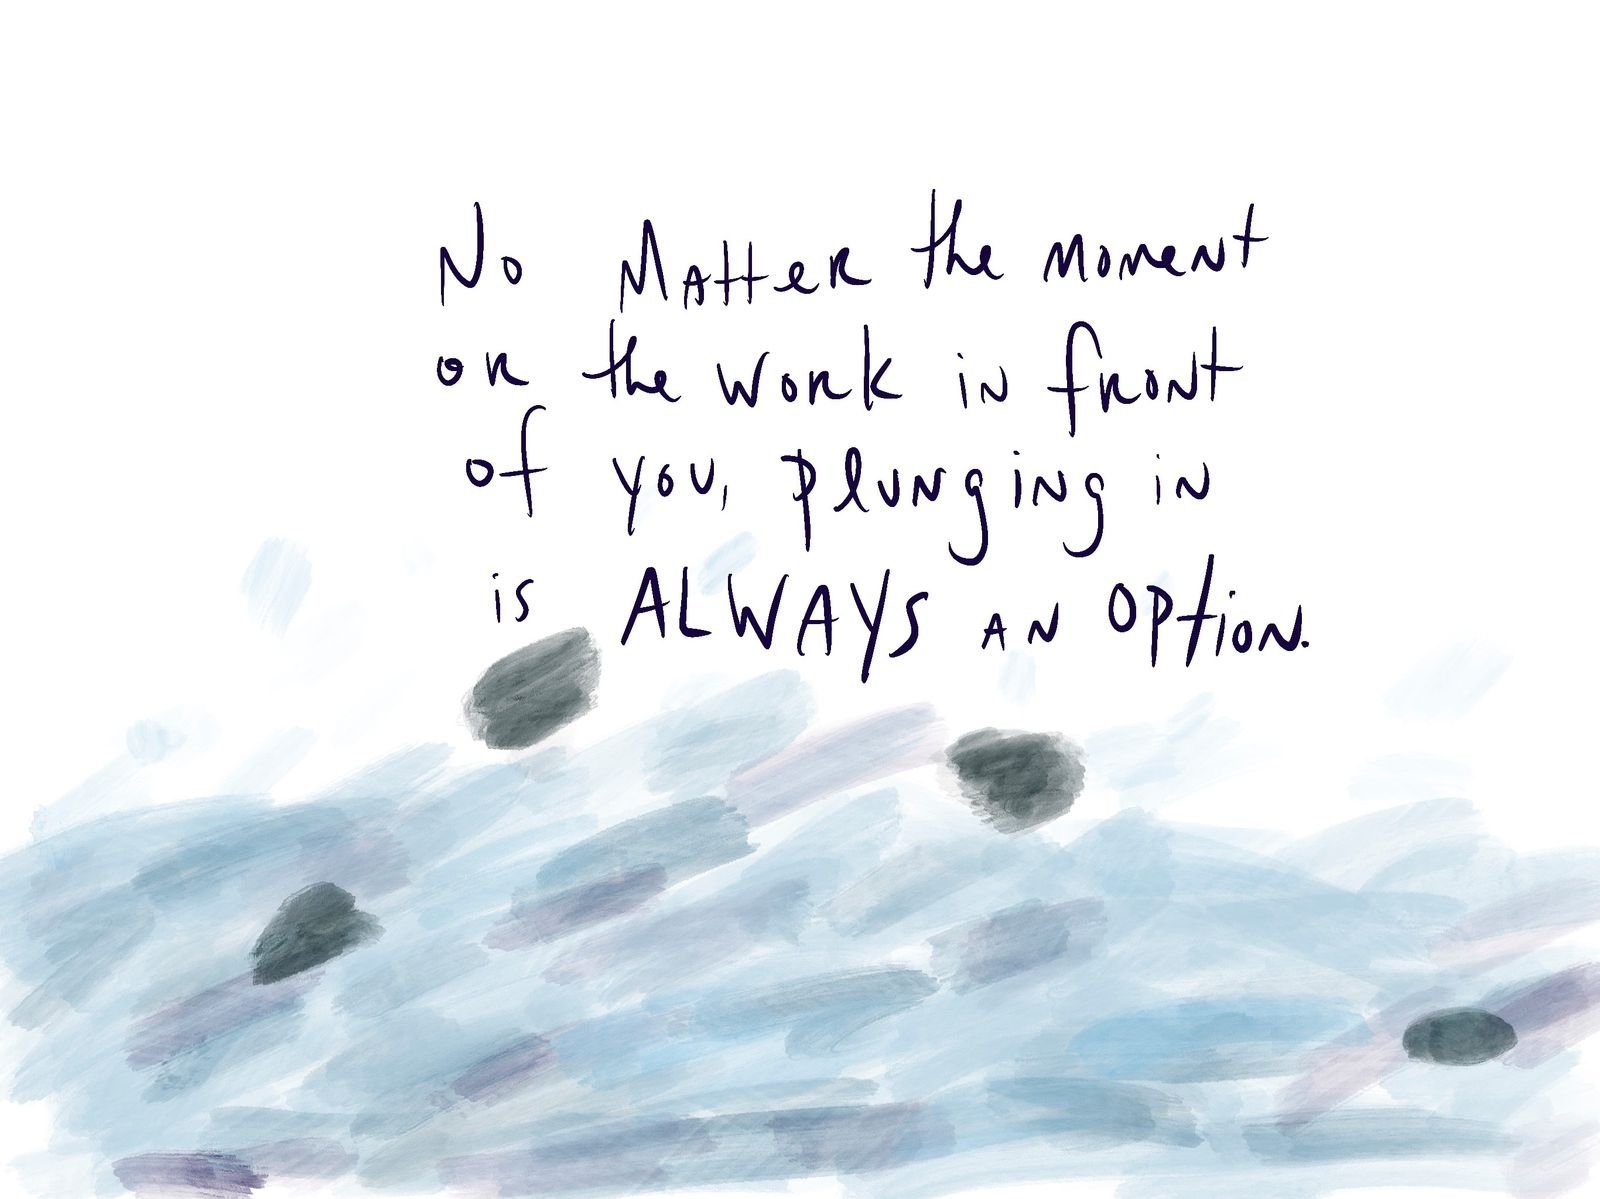 No Matter the moment
or the work in front
of you, plunging in
is ALWAYS an option.